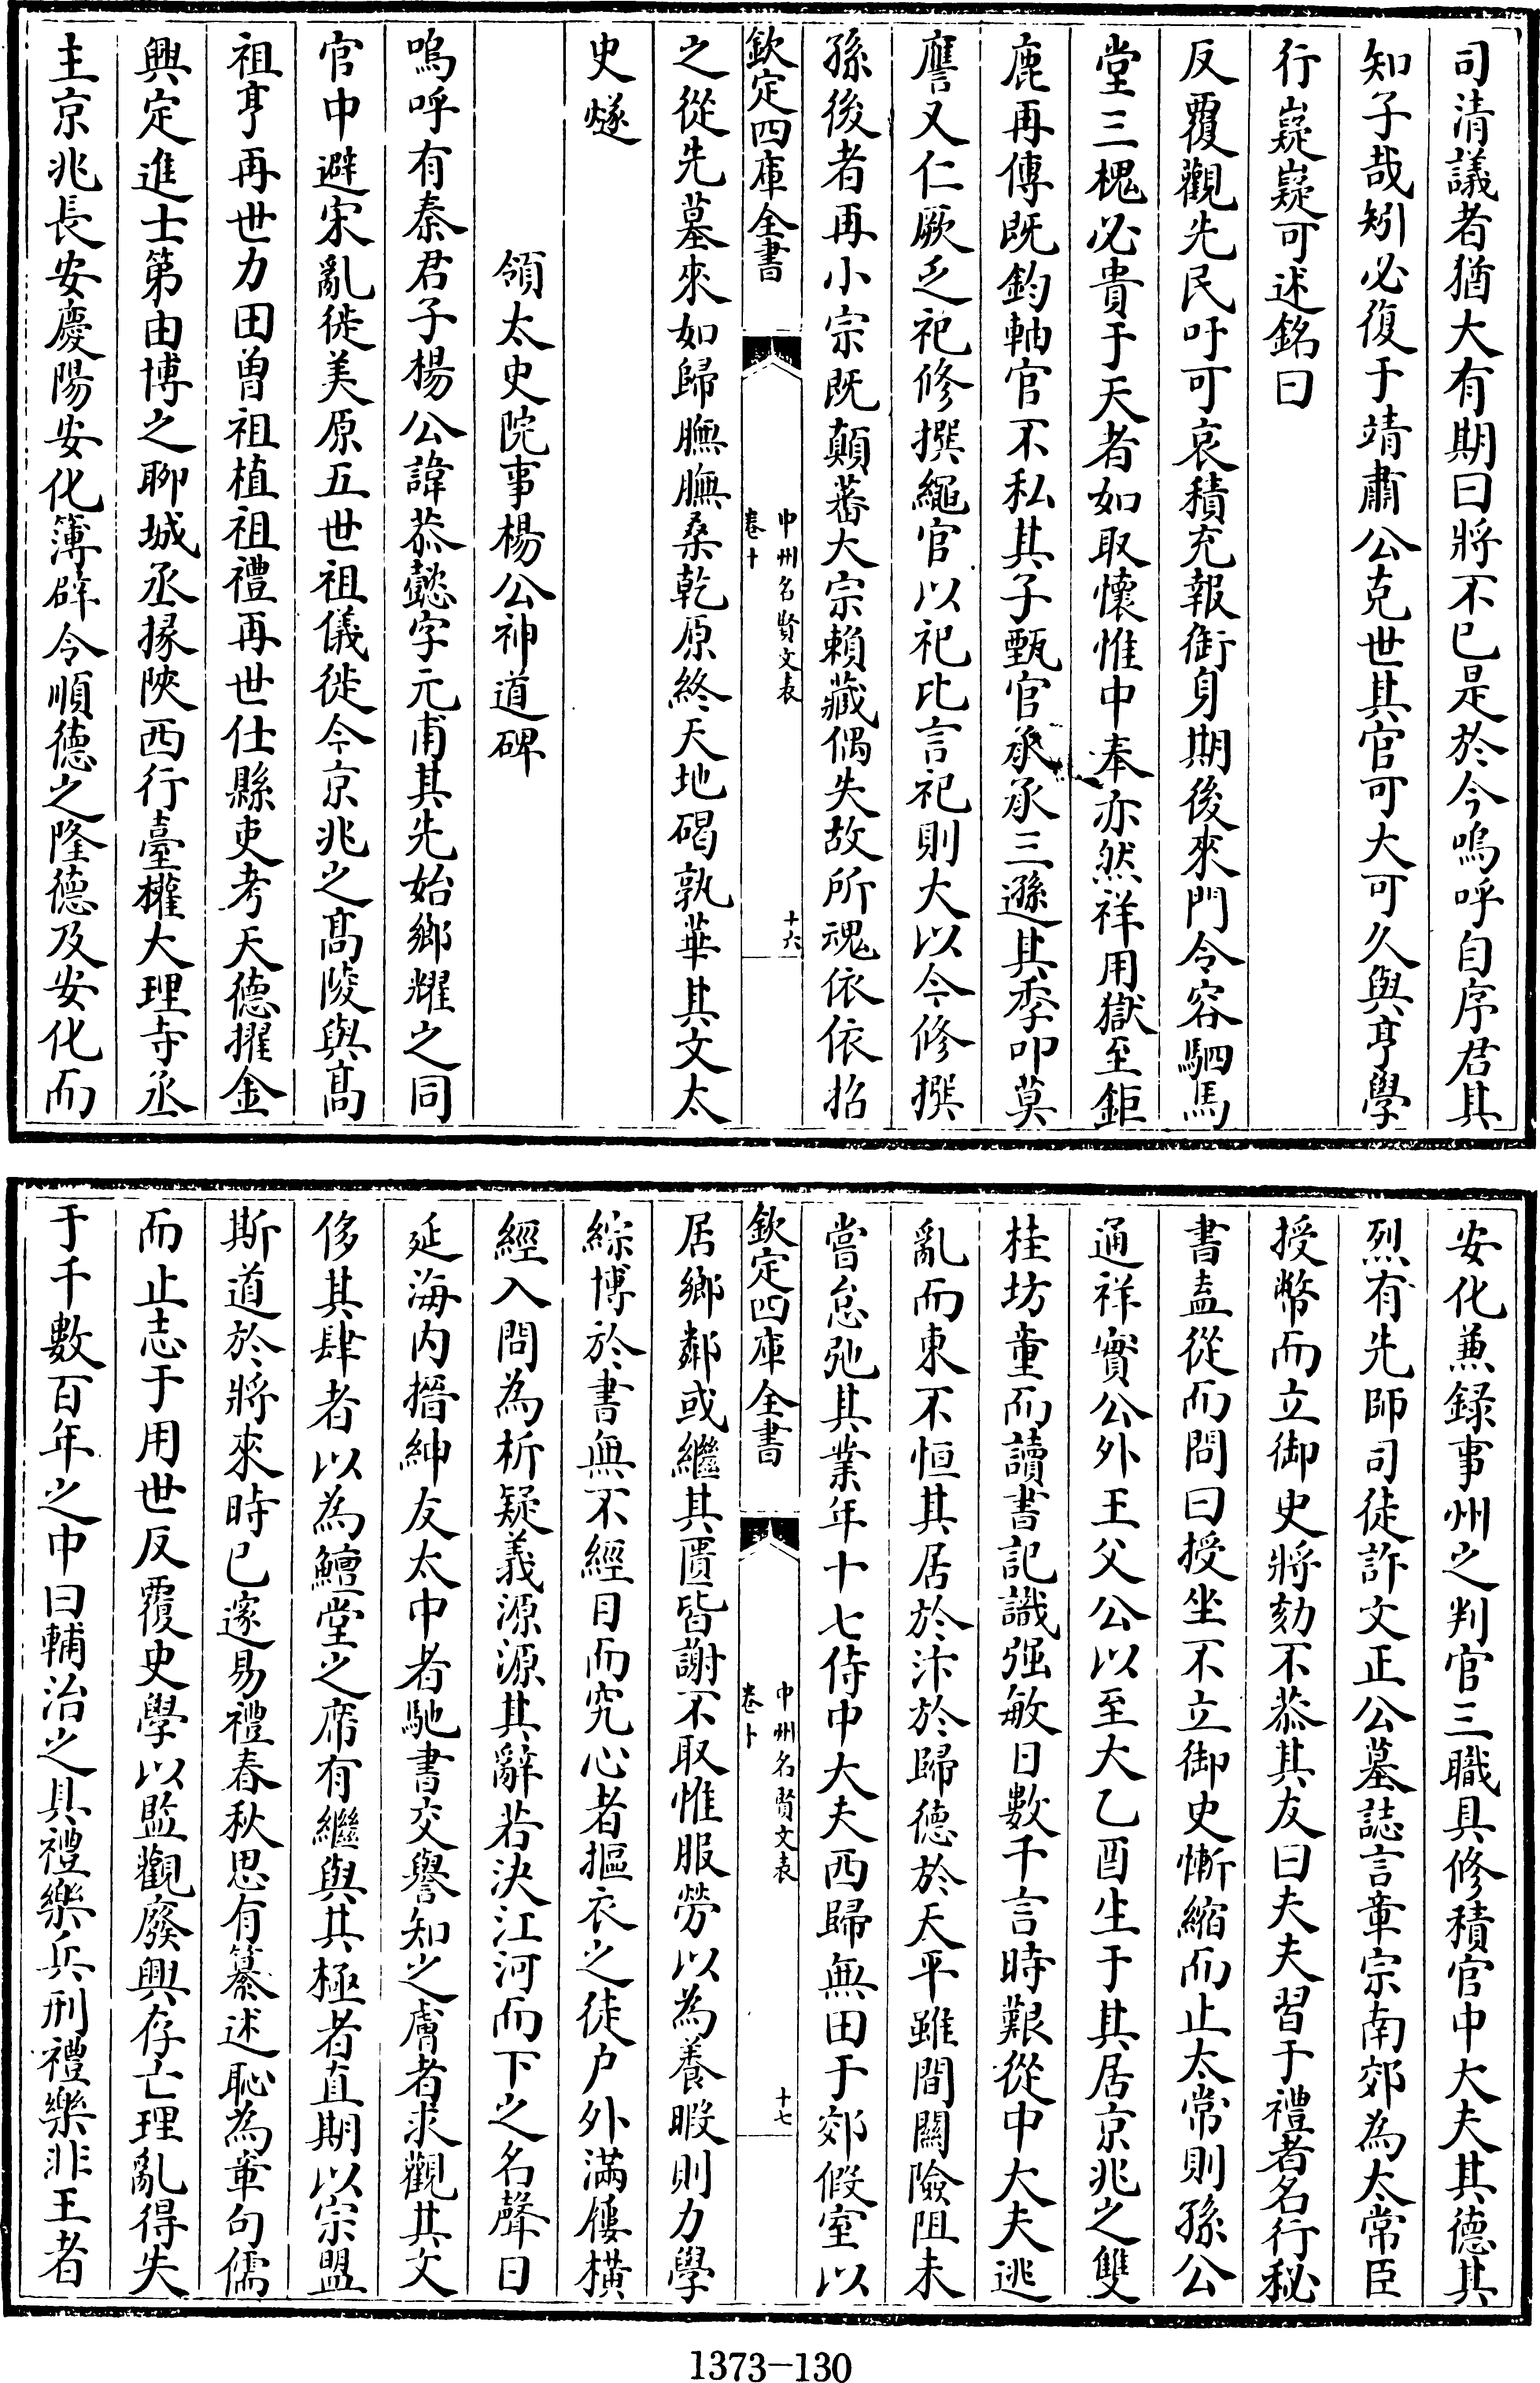 司清議者猶大有期曰將不已是於今嗚呼自序君其
知子哉矧必復于靖肅公克世其官可大可久與亨學
行嶷嶷可述銘曰
反覆觀先民吁可哀積充報衘身期後來門令容駟馬
堂三槐必貴于天者如取懷惟中奉亦然祥用獄至鉅
鹿再傳既鈞軸官不私其子甄官承承三遜其季叩莫
譍又仁厥乏祀修撰繩官以祀比言祀則大以今修撰
孫後者再小宗既顛蕃大宗賴藏偶失故所魂依依招
欽定四庫全書
中州名賢文表
卷十
十六
之從先墓來如歸膴膴桑乾原終天地碣孰華其文太
史燧
領太史院事楊公神道碑
嗚呼有秦君子楊公諱恭懿字元甫其先始鄉耀之同
官中避宋亂徙美原五世祖儀徙今京兆之髙陵與髙
祖亨再世力田曾祖植祖禮再世仕縣吏考天德擢金
興定進士第由博之聊城丞掾陜西行臺權大理寺丞
主京兆長安慶陽安化簿辟令順德之隆德及安化而
安化兼録事州之判官三職具修積官中大夫其德其
烈有先師司徒許文正公墓誌言章宗南郊為太常臣
授幣而立御史將劾不恭其友曰夫夫習于禮者名行秘
書盍從而問曰授坐不立御史慚縮而止太常則孫公
通祥實公外王父公以至大乙酉生于其居京兆之雙
桂坊童而讀書記識强敏日數千言時艱從中大夫逃
亂而東不恒其居於汴於歸德於天平雖間關險阻未
嘗怠弛其業年十七侍中大夫西歸無田于郊假室以
欽定四庫全書
中州名賢文表
卷十
十七
居鄉鄰或繼其匱皆謝不取惟服勞以為養暇則力學
綜博於書無不經目而究心者摳衣之徒户外滿屨横
經入問為析疑義源源其辭若決江河而下之名聲日
延海内搢紳友太中者馳書交譽知之膚者求觀其文
侈其肆者以為鱣堂之席有繼與其極者直期以宗盟
斯道於將來時已邃易禮春秋思有纂述恥為章句儒
而止志于用世反覆史學以監觀廢興存亡理亂得失
于千數百年之中曰輔治之具禮樂兵刑禮樂非王者
1373-130